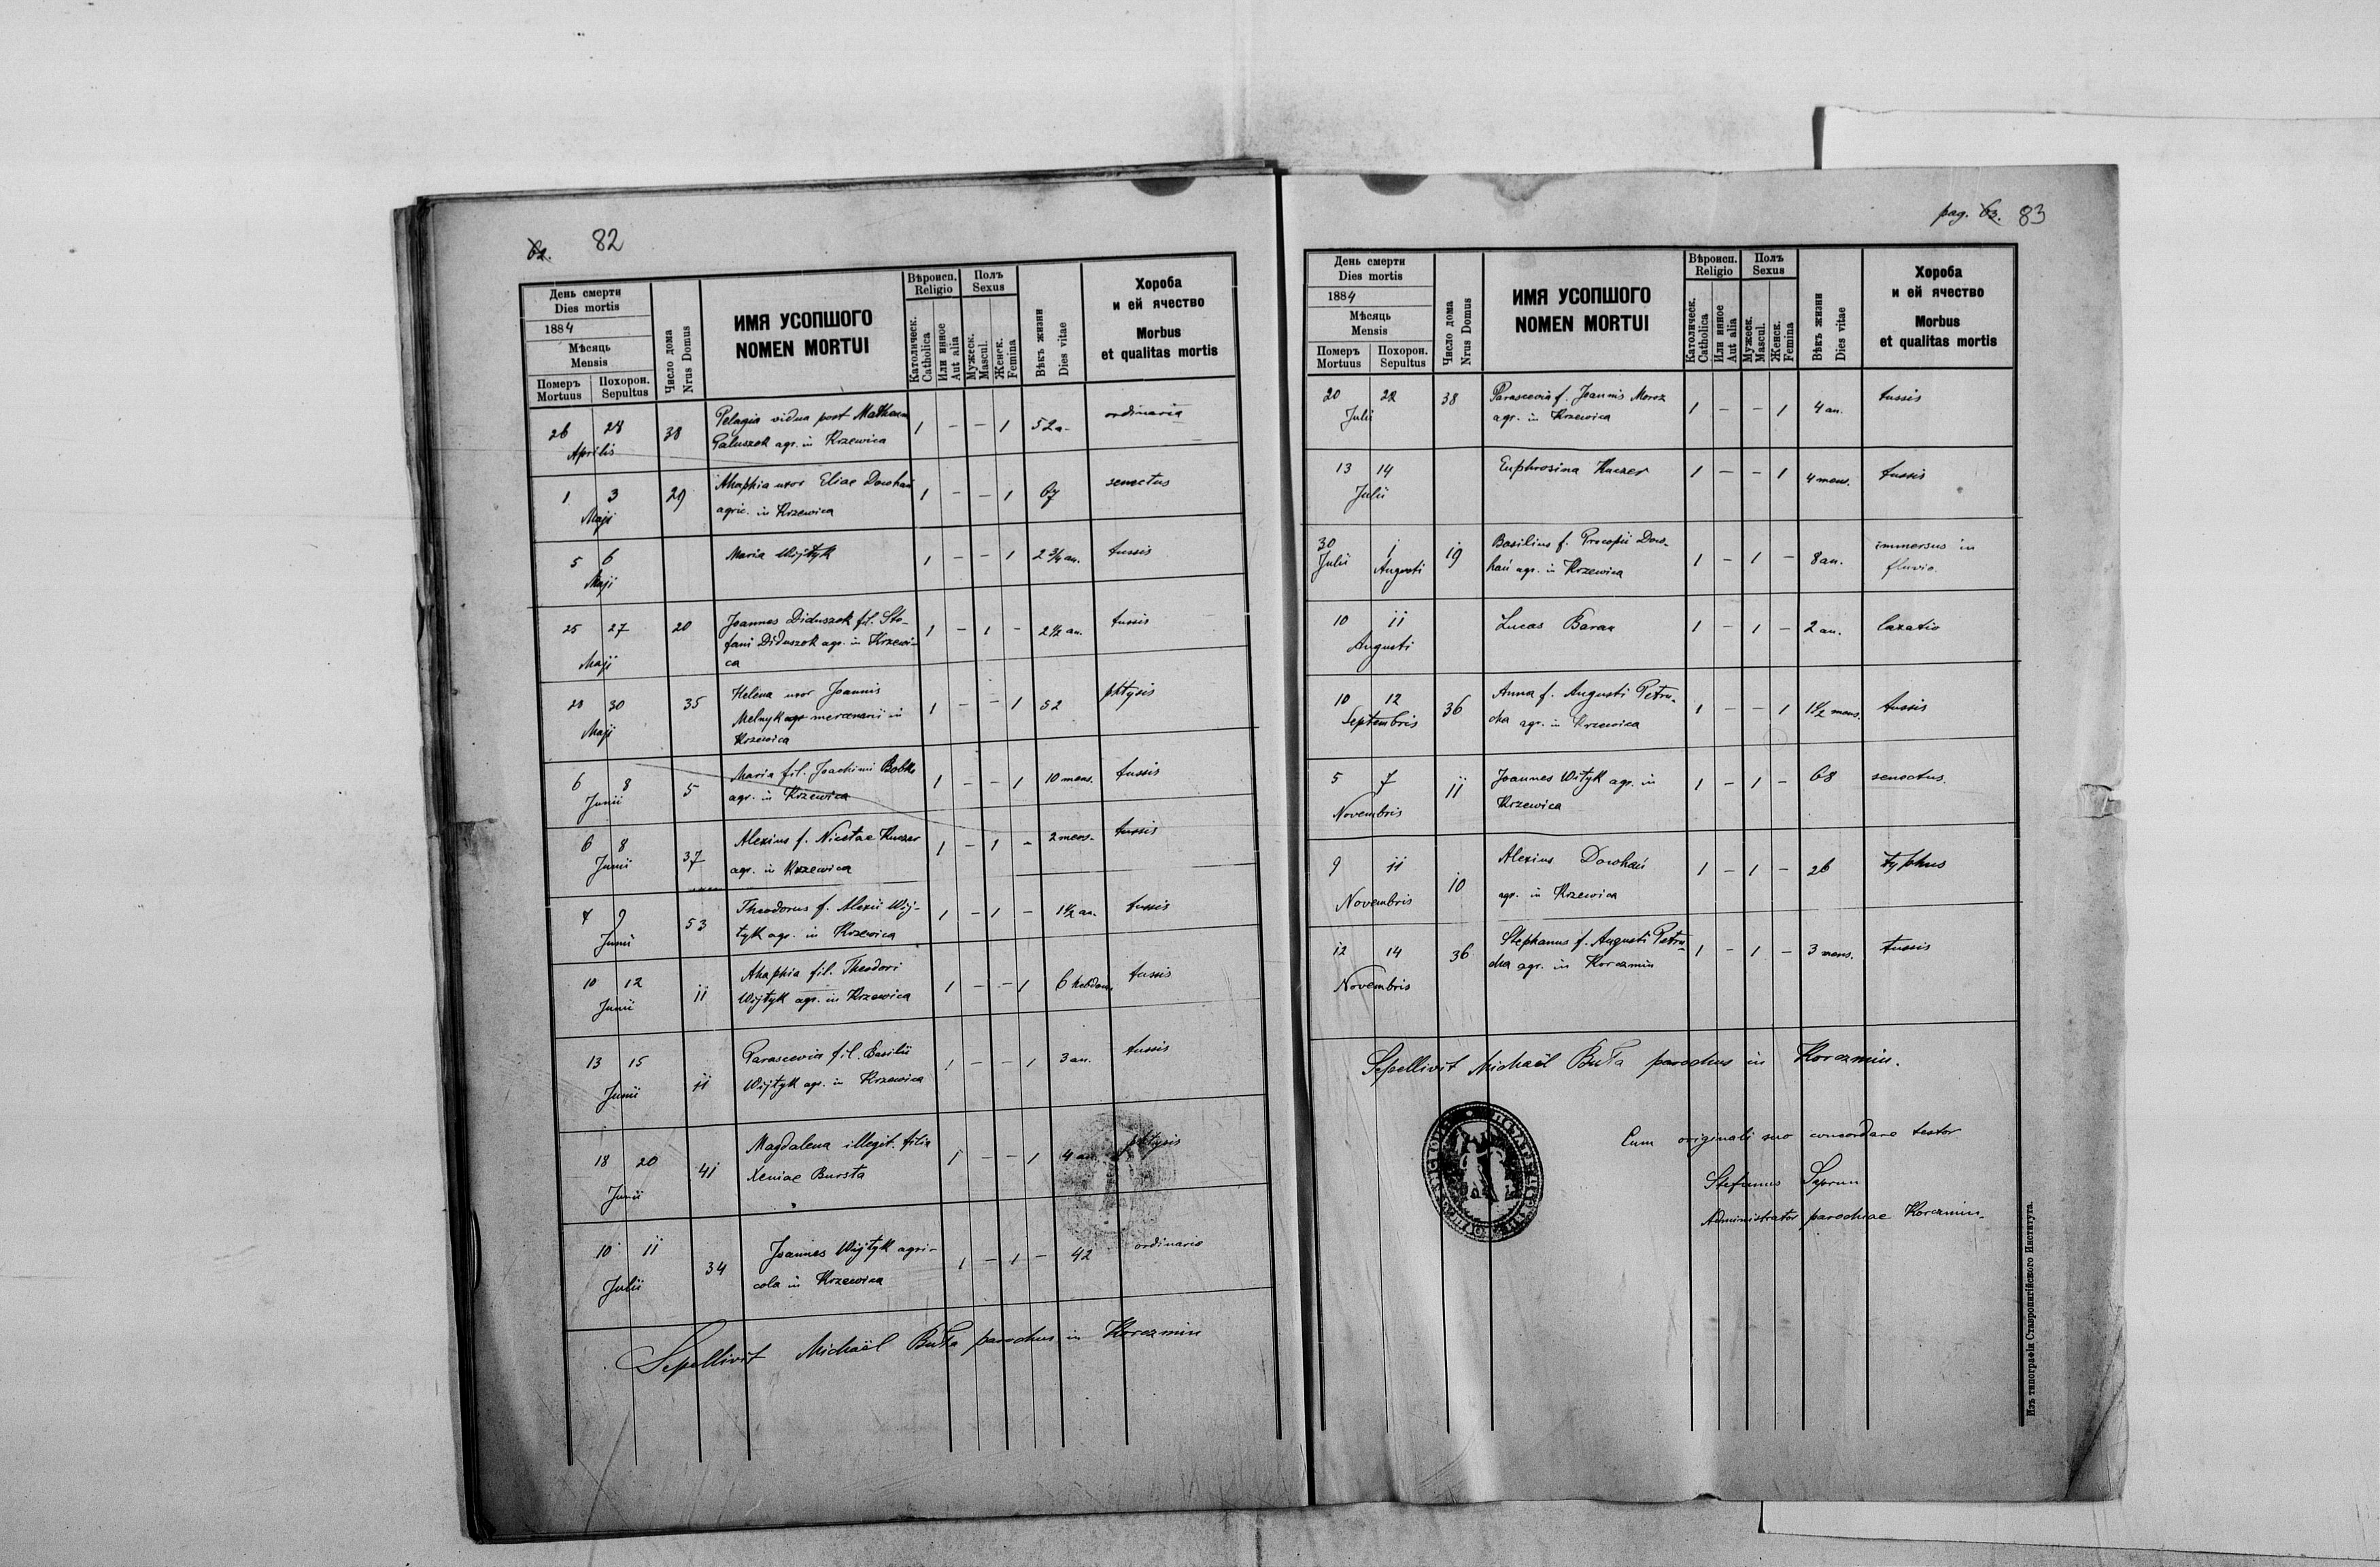 82
День смерти
Dies mortis
1884
Мѣсяць
Mensis
Померъ
Mortuus
Похорон.
Sepultus
Число дома
Nrus Domus
ИМЯ УСОПШОГО
NOMEN MORTUI
Вѣроисп.
Religio
Католическ.
Catholica
Или инное
Aut alia
Полъ
Sexus
Мужеск.
Mascul.
Женск.
Femina
Вѣкъ жизни
Dies vitae
Хороба
и ей ячество
Morbus
et qualitas mortis
26 28 38 Pelagia vidua post 1 - - 1 52 a. ordinaria
Aprilis Paluszok agr. in Krzewica
1 3 29 Ahaphia uxor Eliae Dowhań 1 - - 1 67 senectus
Maji agric. in Krzewica
5 6 Maria Wijtyk 1 - - 1 2 3/4 an. tussis
Maji
25 27 20 Joannes Diduszok fil. Ste- 1 - 1 - 2 1/2 an. tussis
fani Diduszok agr. in Krzewi-
Maji ca
30 35 Helena uxor Joannis 1 - - 1 52 phtysis
Maji Melnyk mercenarii in
Krzewica
6 8 5 Maria fil. Joachimi Bobko 1 - - 1 10 mens. tussis
Junii agr. in Krzewica
6 8 37 Alexius f. Nicetae Kuczer 1 - 1 - 2 mens. tussis
Junii agr. in Krzewica
7 9 53 Theodorus f. Alexii Wij- 1 - 1 - 1 1/2 an. tussis
Junii tyk agr. in Krzewica
10 12 11 Ahaphia fil. Theodori 1 - - 1 6 hebdom. tussis
Junii Wijtyk agr. in Krzewica
13 15 11 Parascevia fil. Basilii 1 - - 1 3 an. tussis
Junii Wijtyk agr. in Krzewica
18 20 41 Magdalena illegit. filia 1 - - 1 4 an. phtysis
Junii Xeniae Bursta
10 11 34 Joannes Wijtyk agri- 1 - 1 - 42 ordinario
Julii cola in Krzewica
Sepellivit Michaël Buła parochus in Korczmin
pag. 63. 83
День смерти
Dies mortis
1884
Мѣсяць
Mensis
Померъ
Mortuus
Похорон.
Sepultus
Число дома
Nrus Domus
ИМЯ УСОПШОГО
NOMEN MORTUI
Вѣроисп.
Religio
Католическ.
Catholica
Или инное
Aut alia
Полъ
Sexus
Мужеск.
Mascul.
Женск.
Femina
Вѣкъ жизни
Dies vitae
Хороба
и ей ячество
Morbus
et qualitas mortis
20 22 38 Parascevia f. Joannis Moroz 1 - - 1 4 an. tussis
Julii agr. in Krzewica
13 14 Euphrosina Kuczer 1 - - 1 4 mens. tussis
Julii
30 1 19 Basilius f. Procopii Dow- 1 - 1 - 8 an. immersus in
Julii Augusti hań agr. in Krzewica fluvio
10 11 Lucas Baran 1 - 1 - 2 an. laxatio
Augusti
10 12 36 Anna f. Augusti Petru- 1 - - 1 1 1/2 mens. tussis
Septembris cha agr. in Krzewica
5 7 11 Joannes Wityk agr. in 1 - 1 - 68 senectus
Novembris Krzewica
9 11 10 Alexius Dowhań 1 - 1 - 26 typhus
Novembris agr. in Krzewica
12 14 36 Stephanus f. Augusti Petru- 1 - 1 - 3 mens. tussis
Novembris cha agr. in Korczmin
Sepellivit Michaël Buła parochus in Korczmin.
Cum originali suo concordare testor
Stefanus Saprun
Administrator parochiae Korczmin.
Изъ типографіи Ставропигійского Института.